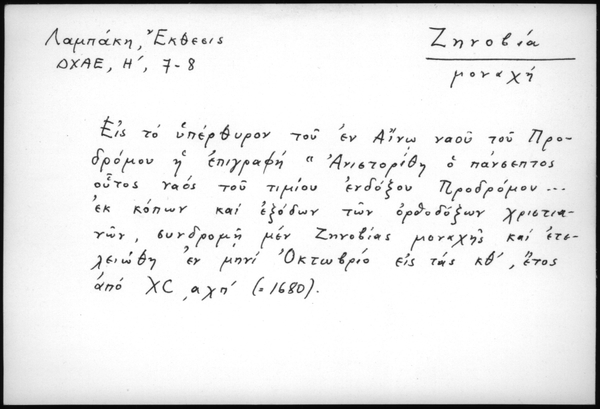 Λαμπάκη, Ἔκθεσις
ΔΧΑΕ, Η΄, 7-8
Ζηνοβία
μοναχή
Εἰς τό ὑπέρθυρον τοῦ ἐν Αἴνῳ ναοῦ τοῦ Προ-
δρόμου ἡ ἐπιγραφή "Ἀνιστορίθη ὁ πάνσεπτος
οὗτος ναός τοῦ τιμίου ἐνδόξου Προδρόμου...
ἐκ κόπων καί ἐξόδων τῶν ὀρθοδόξων χριστια-
νῶν, συνδρομῇ μέν Ζηνοβίας μοναχῆς καί ἐτε-
λειώθη ἐν μηνί Ὀκτωβρίο εἰς τάς κθ΄, ἔτος
ἀπό ΧC ͵αχπ΄ (=1680).